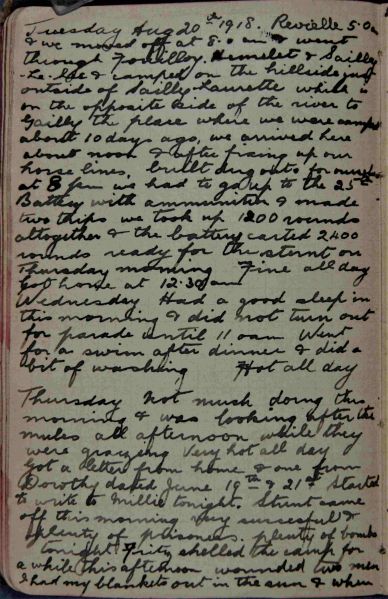 Tuesday Aug 20th 1918. Reveille 5.0am
& we moved off at 8.0 am & went
through Fouilloy, Hamelet & Sailly
-Le-Sec & camped on the hillside just
outside of Sailly-Laurette which is
on the opposite side of the river to
Sailly the place where we were camped
about 10 days ago, we arrived here
about noon & after fixing up our
horse lines, built dug outs for ourselves
at 8 pm we had to go up to the 25th
Battery with ammunition & made
two trips we took up 1200 rounds
altogether & the battery carted 2400
rounds ready for the stunt on
Thursday morning Fine all day
Got home at 12.30 am
Wednesday Had a good sleep in
this morning & did not turn out
for parade until 11 oam Went
for a swim after dinner & did a
bit of washing Hot all day
Thursday Not much doing this
morning & was looking after the
mules all afternoon while they
were grazing Very hot all day
Got a letter from home & one from
Dorothy dated June 19th & 21st Started
to write to Millie tonight. Stunt came
off this morning very sucessful &
plenty of prisoners. plenty of bombs
tonight Fritz shelled the camp for
a while this afternoon wounded two men
I had my blankets out in the sun & when